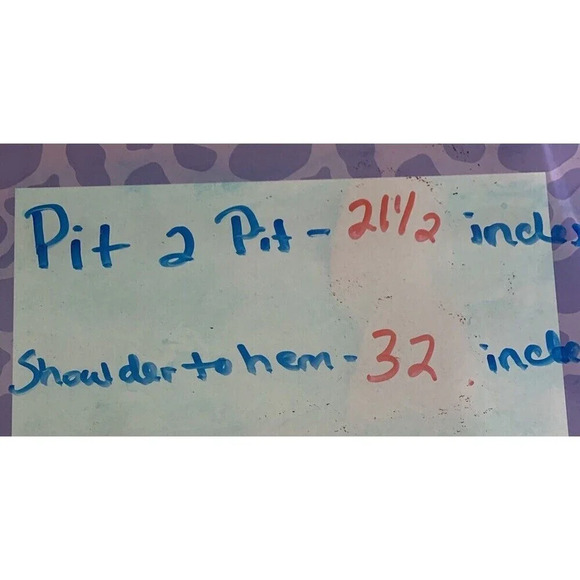 Pit 2 Pit - 21 1/2 inches
Showlder to hem - 32 inche